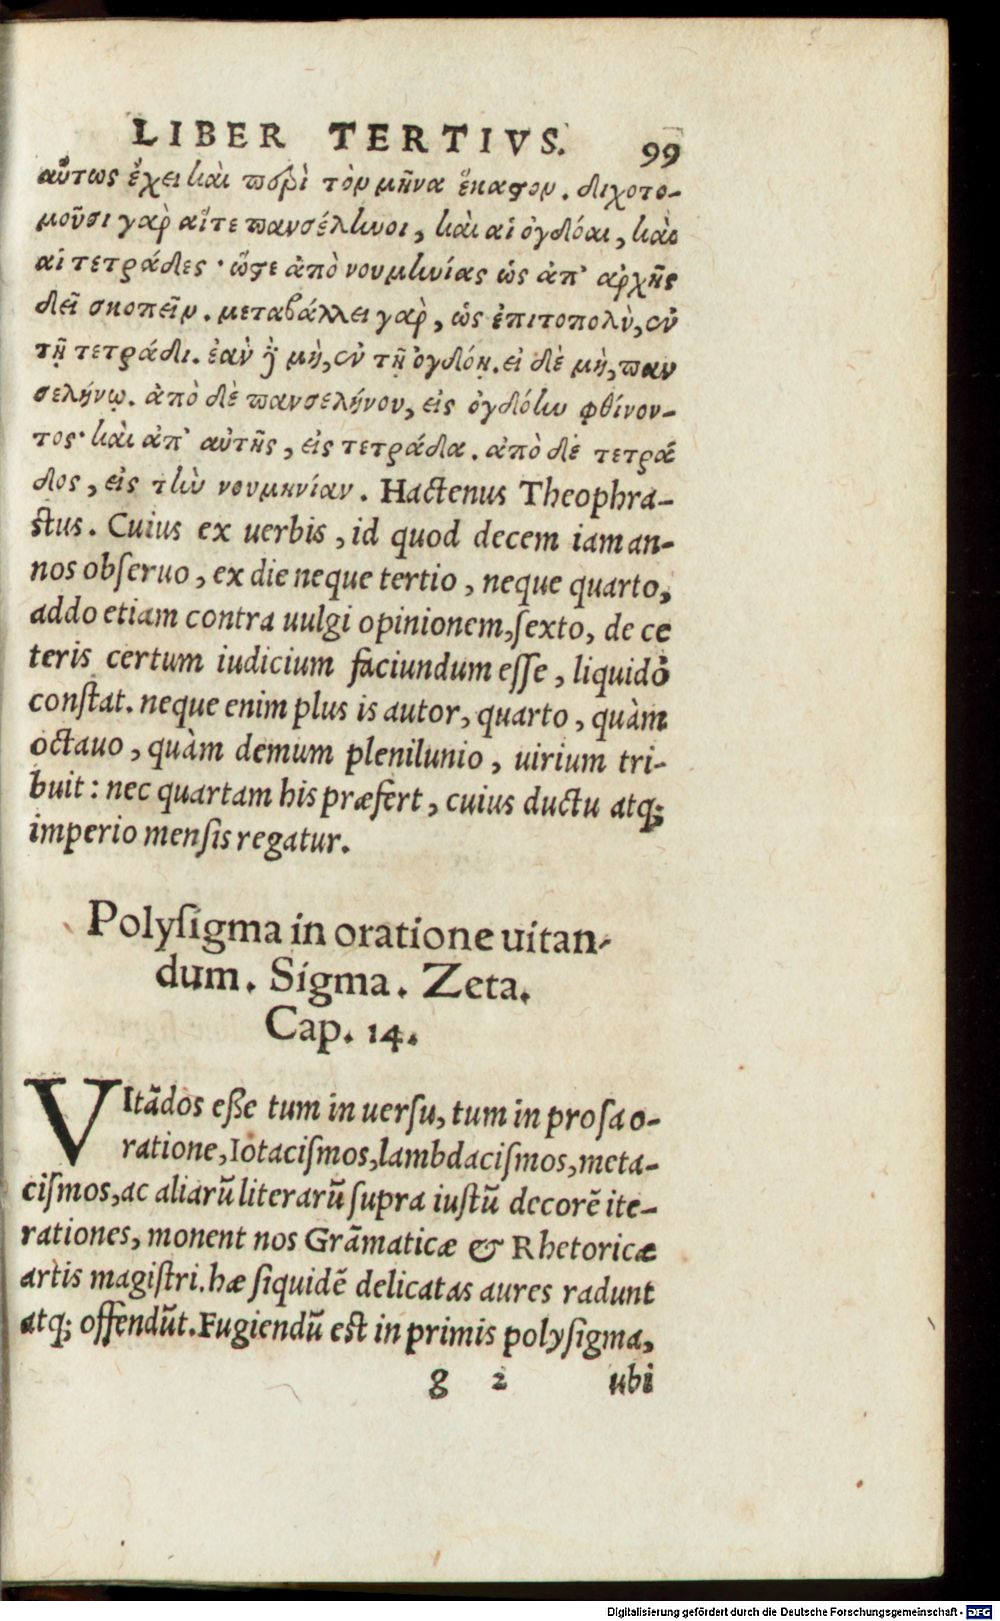 LIBER TERTIVS. 99
αὕτως ἔχει καὶ περὶ τὸν μῆνα ἕκαστον. διχοτο-
μοῦσι γὰρ αἵτε πανσέληνοι, καὶ αἱ ὀγδόαι, καὶ
αἱ τετράδες· ὥστε ἀπὸ νουμηνίας ὡς ἀπ’ ἀρχῆς
δεῖ σκοπεῖν. μεταβάλλει γὰρ, ὡς ἐπιτοπολὺ, ἐν
τῇ τετράδι. ἐὰν δὲ μὴ, ἐν τῇ ὀγδόῃ. εἰ δὲ μὴ, παν
σελήνῳ. ἀπὸ δὲ πανσελήνου, εἰς ὀγδόην φθίνον-
τος· καὶ ἀπ’ αὐτῆς, εἰς τετράδα. ἀπὸ δὲ τετρά
δος, εἰς τὴν νουμηνίαν. Hactenus Theophra-
stus. Cuius ex uerbis, id quod decem iam an-
nos obſeruo, ex die neque tertio, neque quarto,
addo etiam contra uulgi opinionem, ſexto, de ce
teris certum iudicium faciundum eſſe, liquidò
conſtat. neque enim plus is autor, quarto, quàm
octauo, quàm demum plenilunio, uirium tri-
buit: nec quartam his præfert, cuius ductu atq;
imperio menſis regatur.
Polyſigma in oratione uitan-
dum. Sigma. Zeta.
Cap. 14.
VItãdos eſſe tum in uerſu, tum in proſa o-
ratione, Iotaciſmos, lambdaciſmos, meta-
ciſmos, ac aliarũ literarũ ſupra iuſtũ decorẽ ite-
rationes, monent nos Grãmaticæ & Rhetoricæ
artis magiſtri. hæ ſiquidẽ delicatas aures radunt
atq; offendũt. Fugiendũ eſt in primis polyſigma,
g 2 ubi
Digitalisierung gefördert durch die Deutsche Forschungsgemeinschaft - DFG